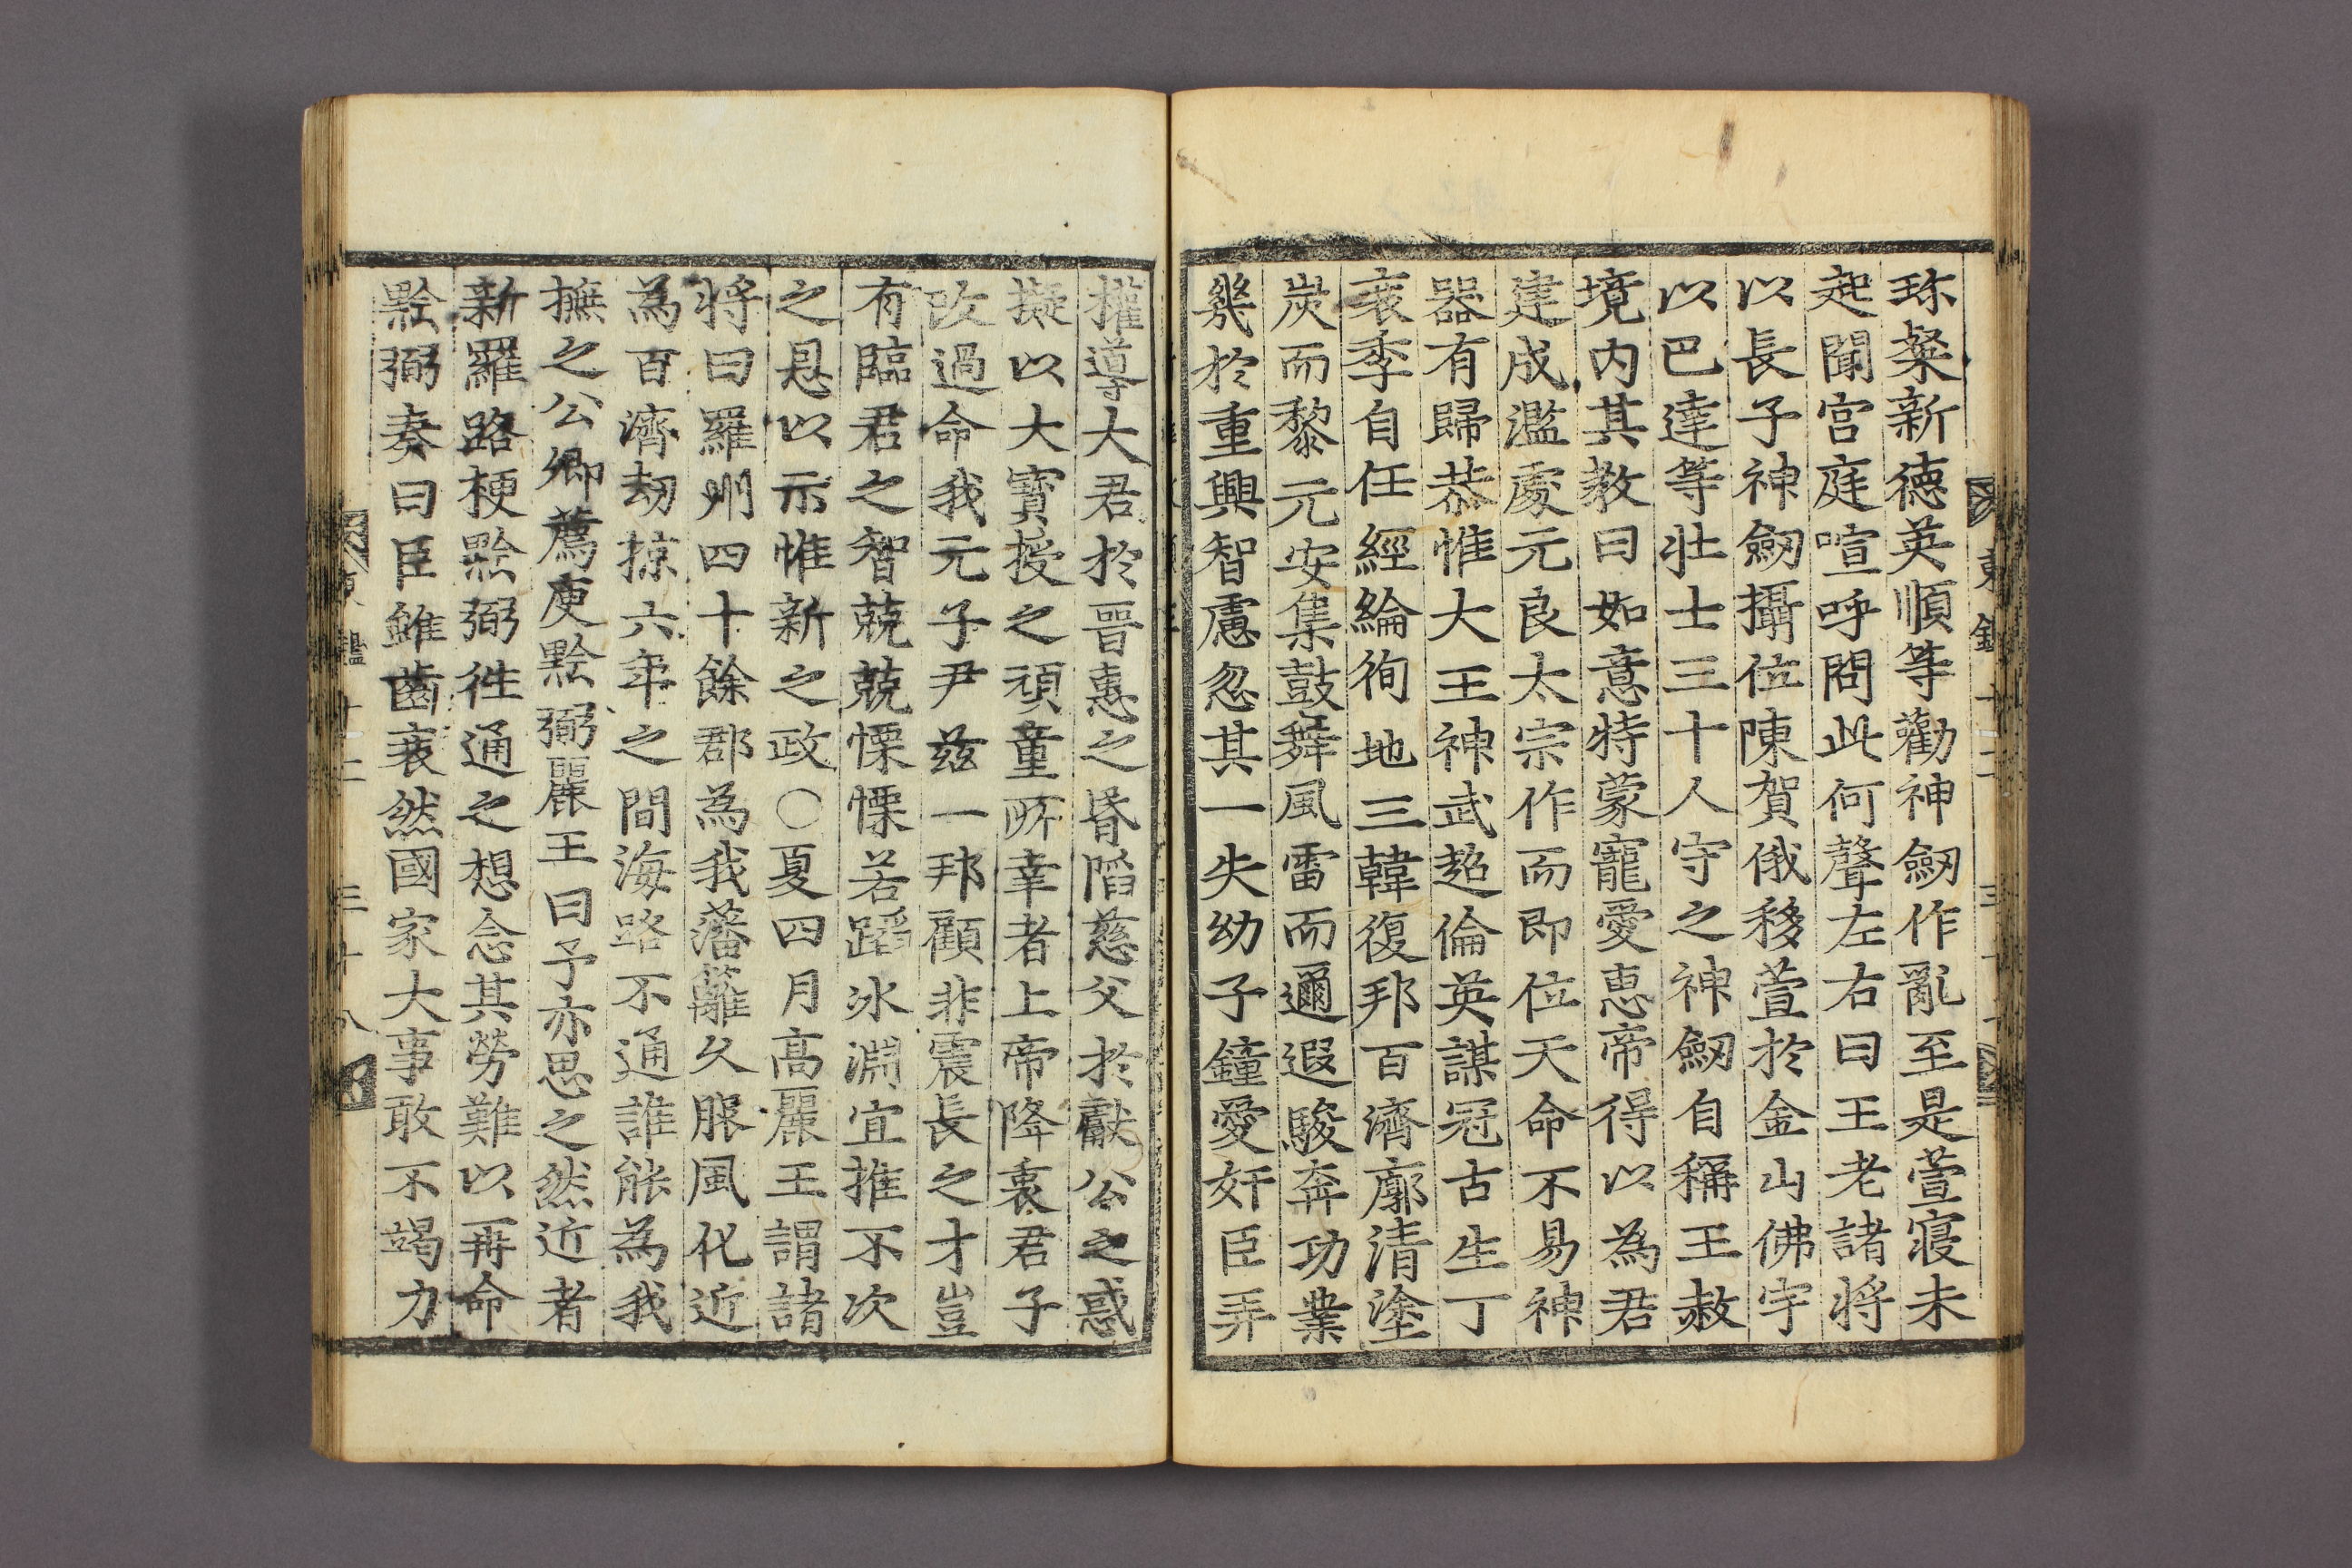 珎粲新德英順等勸神劒作亂至是萱寢未
起聞宮庭喧呼問此何聲左右曰王老諸將
以長子神劒攝位陳賀俄移萱於金山佛宇
以巴達等壯士三十人守之神劒自稱王赦
境内其敎曰如意特蒙寵愛惠帝得以為君
建成濫處元良太宗作而即位天命不易神
器有歸恭惟大王神武超倫英謀冠古生丁
衰季自任經綸徇地三韓復邦百濟廓清塗
炭而黎元安集鼓舞風雷而邇遐駿奔功業
幾於重興智慮忽其一失幼子鐘愛奸臣弄
權導大君於晋惠之昏陷慈父於獻公之惑
擬以大寶授之頑童所幸者上帝降衷君子
改過命我元子尹兹一邦顧非震長之才豈
有臨君之智兢兢慄慄若蹈冰淵宜推不次
之恩以示惟新之政○夏四月高麗王謂諸
將曰羅州四十餘郡為我藩籬久服風化近
為百濟刼掠六年之間海路不通誰能為我
撫之公卿薦庾黔弼麗王曰予亦思之然近者
新羅路梗黔弼徃通之想念其勞難以再命
黔弼奏曰臣雖齒衰然國家大事敢不竭力
十二 三十八